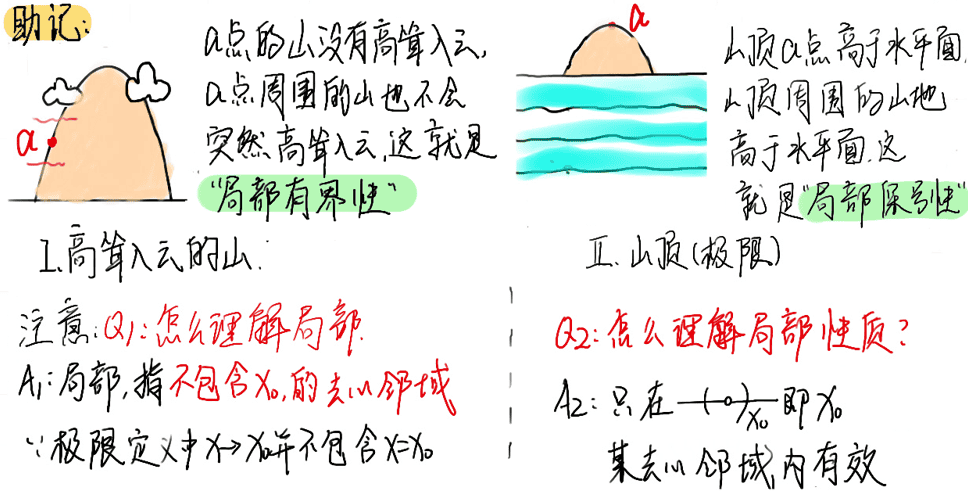 助记:
a点的山没有高耸入云,
a点周围的山也不会
突然高耸入云,这就是
"局部有界性"
a
I.高耸入云的山:
a
山顶a点高于水平面,
山顶周围的山地
高于水平面.这
就是"局部保号性"
II. 山顶(极限)
注意:Q1:怎么理解局部.
A1:局部,指不包含X0,的去心邻域
∵极限定义中X→X0并不包含X=X0
Q2:怎么理解局部性质?
A2:只在 (o) X0 即X0
某去心邻域内有效